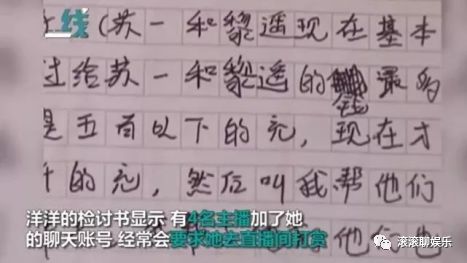 一线
(苏一和黎遥现在基本
过给苏一和黎遥的钱最多
是五百以下的充,现在才
千的充,然后叫我帮他们
洋洋的检讨书显示 有4名主播加了她
的聊天账号 经常会要求她去直播间打赏
滚滚聊娱乐